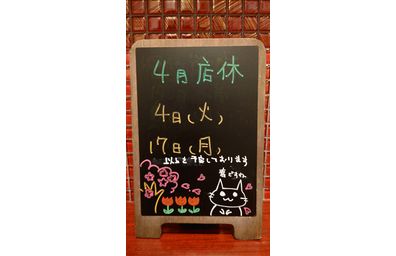 4月店休
4日(火)
17日(月)
以上を予定しております
春ですね